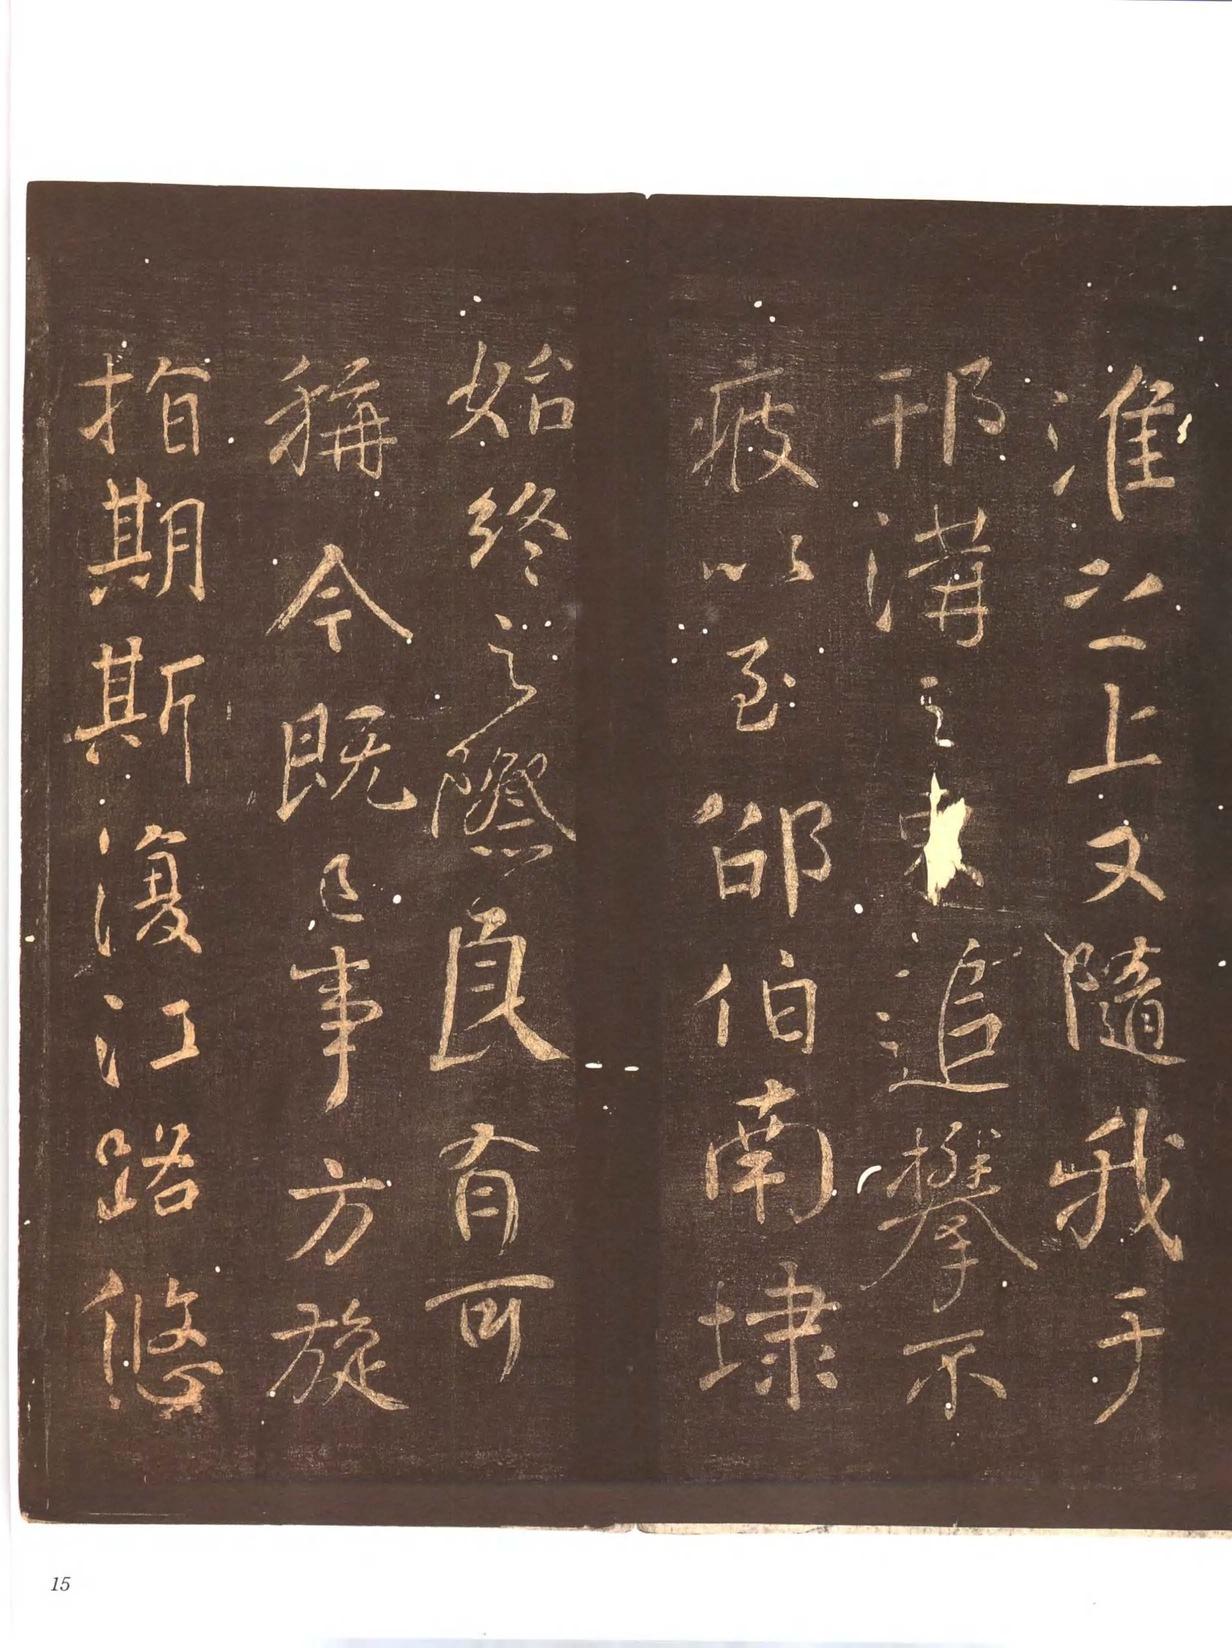 淮之上又隨我于
邗溝之東追攀不
疲以至邵伯南埭
始終之際良有可
稱今既已事方旋
指期斯復江路悠
15